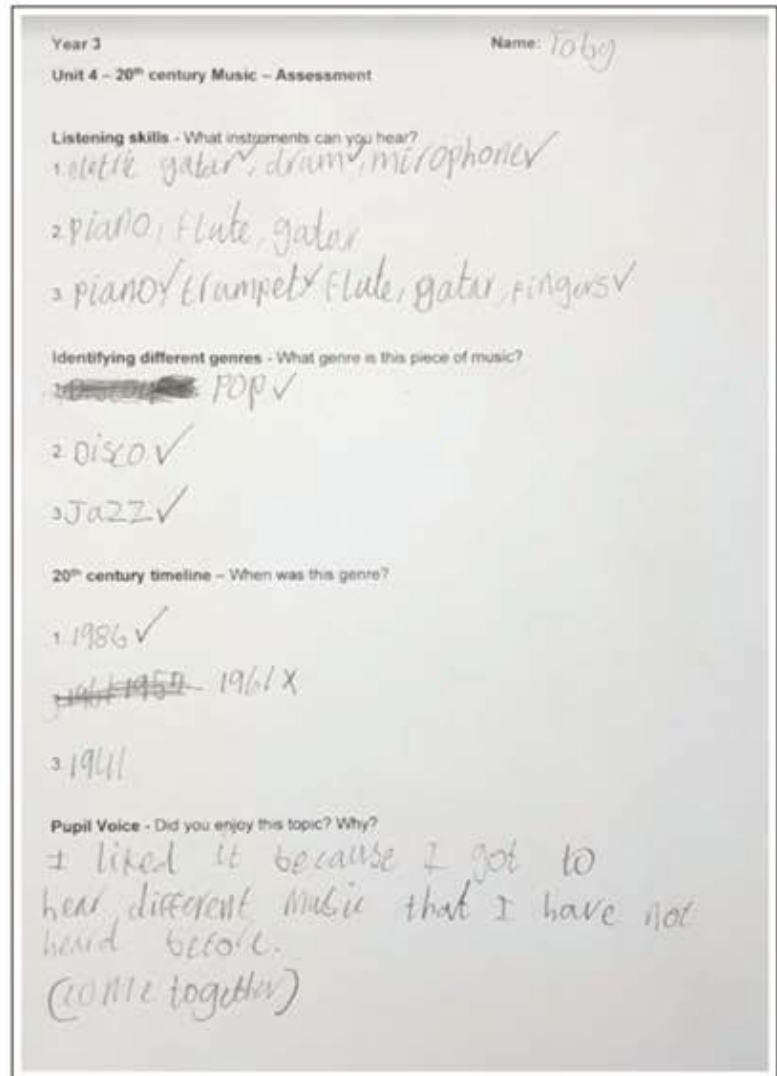 Year 3 Name: Toby
Unit 4 – 20th century Music – Assessment
Listening skills - What instruments can you hear?
1. eletric gatar✓, dram✓, mirophone✓
2. piano, flute, gatar
3. piano✓ trumpet✓ flute, gatar, fingers✓
Identifying different genres - What genre is this piece of music?
POP ✓
2. Disco ✓
3. Jazz ✓
20th century timeline – When was this genre?
1. 1986 ✓
1961 x
3. 1941
Pupil Voice - Did you enjoy this topic? Why?
I liked it because I got to
hear different music that I have not
heard before.
(come together)